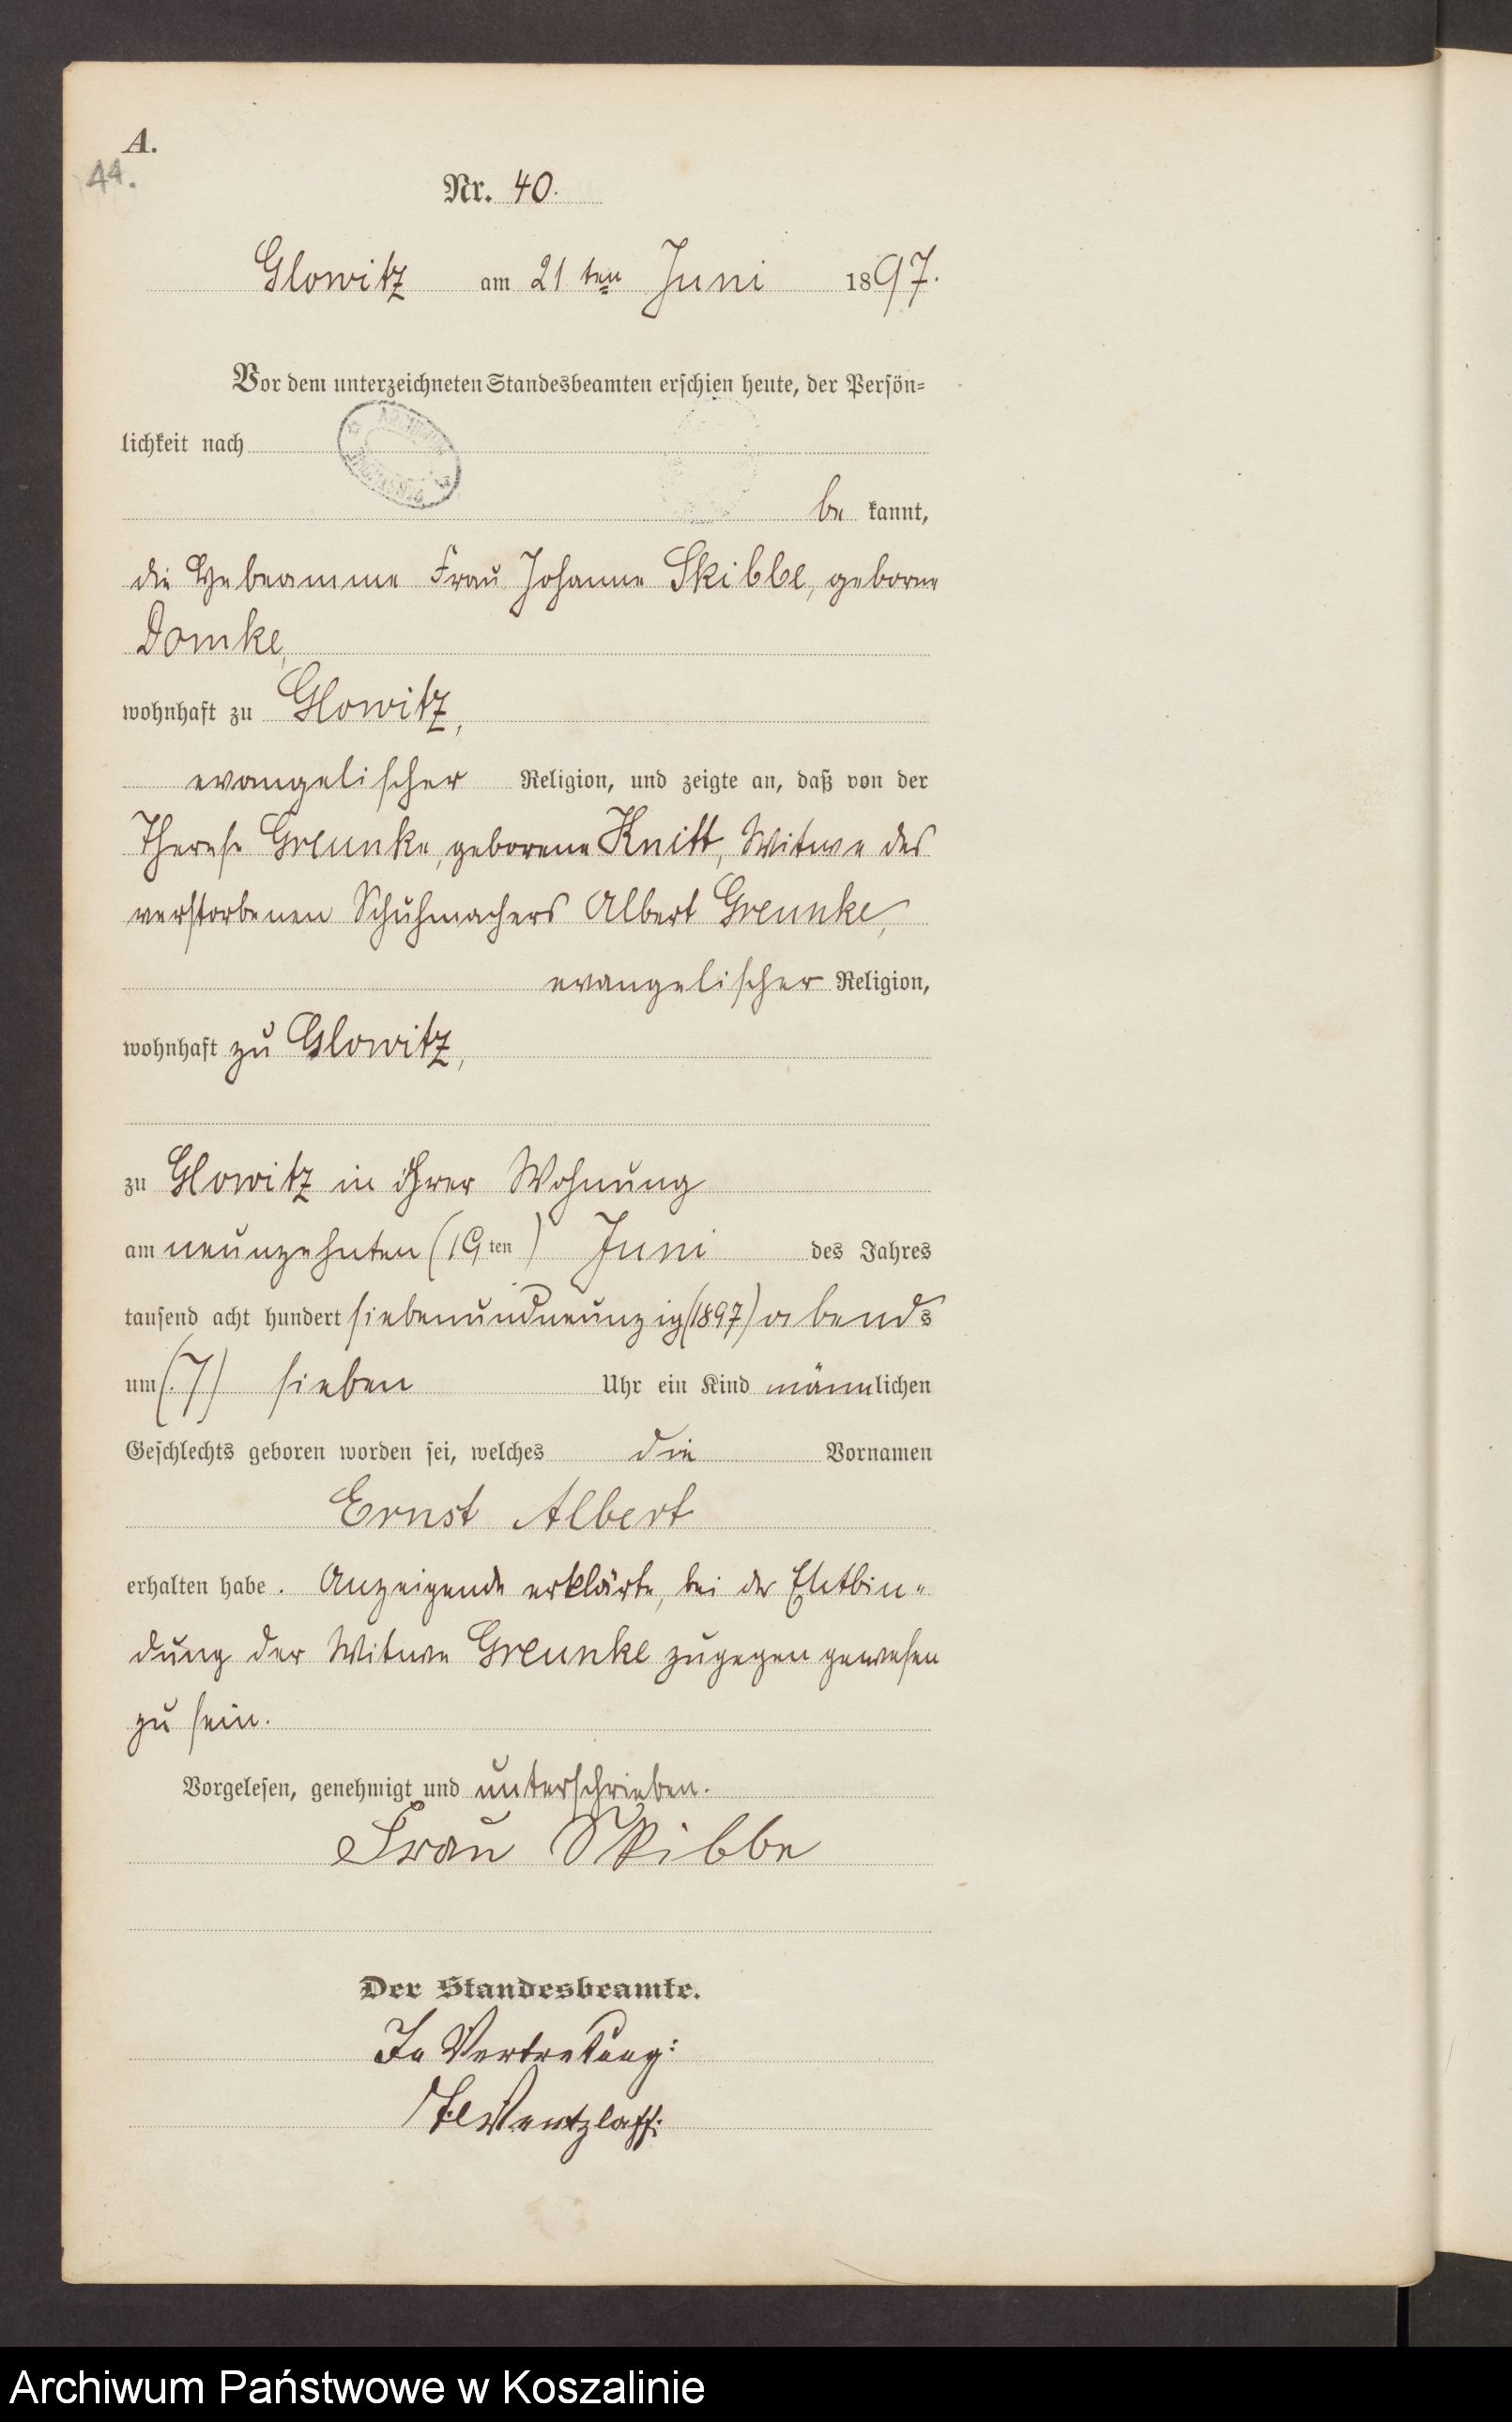 A.
44.
Nr. 40.
Glowitz am 21ten Juni 1897.
Vor dem unterzeichneten Standesbeamten erschien heute, der Persön=
lichkeit nach
be kannt,
die Hebeamme Frau Johanne Skibbe, geborne
Domke,
wohnhaft zu Glowitz,
evangelischer Religion, und zeigte an, daß von der
Therese Greunke, geborene Knitt, Witwe des
verstorbenen Schuhmachers Albert Greunke,
evangelischer Religion,
wohnhaft zu Glowitz,
zu Glowitz in ihrer Wohnung
am neunzehnten (19ten) Juni des Jahres
tausend acht hundert siebenundneunzig (1897) abends
um (7) sieben Uhr ein Kind männlichen
Geschlechts geboren worden sei, welches die Vornamen
Ernst Albert
erhalten habe. Anzeigende erklärte, bei der Entbin=
dung der Witwe Greunke zugegen gewesen
zu sein.
Vorgelesen, genehmigt und unterschrieben.
Frau Skibbe
Der Standesbeamte.
In Vertretung:
Wentzlaff.
Archiwum Państwowe w Koszalinie